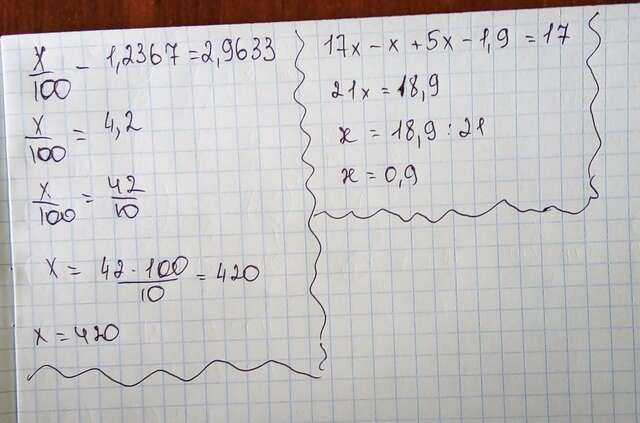 x/100 - 1,2367 = 2,9633
x/100 = 4,2
x/100 = 42/10
x = 42 · 100/10 = 420
x = 420
17x - x + 5x - 1,9 = 17
21x = 18,9
x = 18,9 : 21
x = 0,9